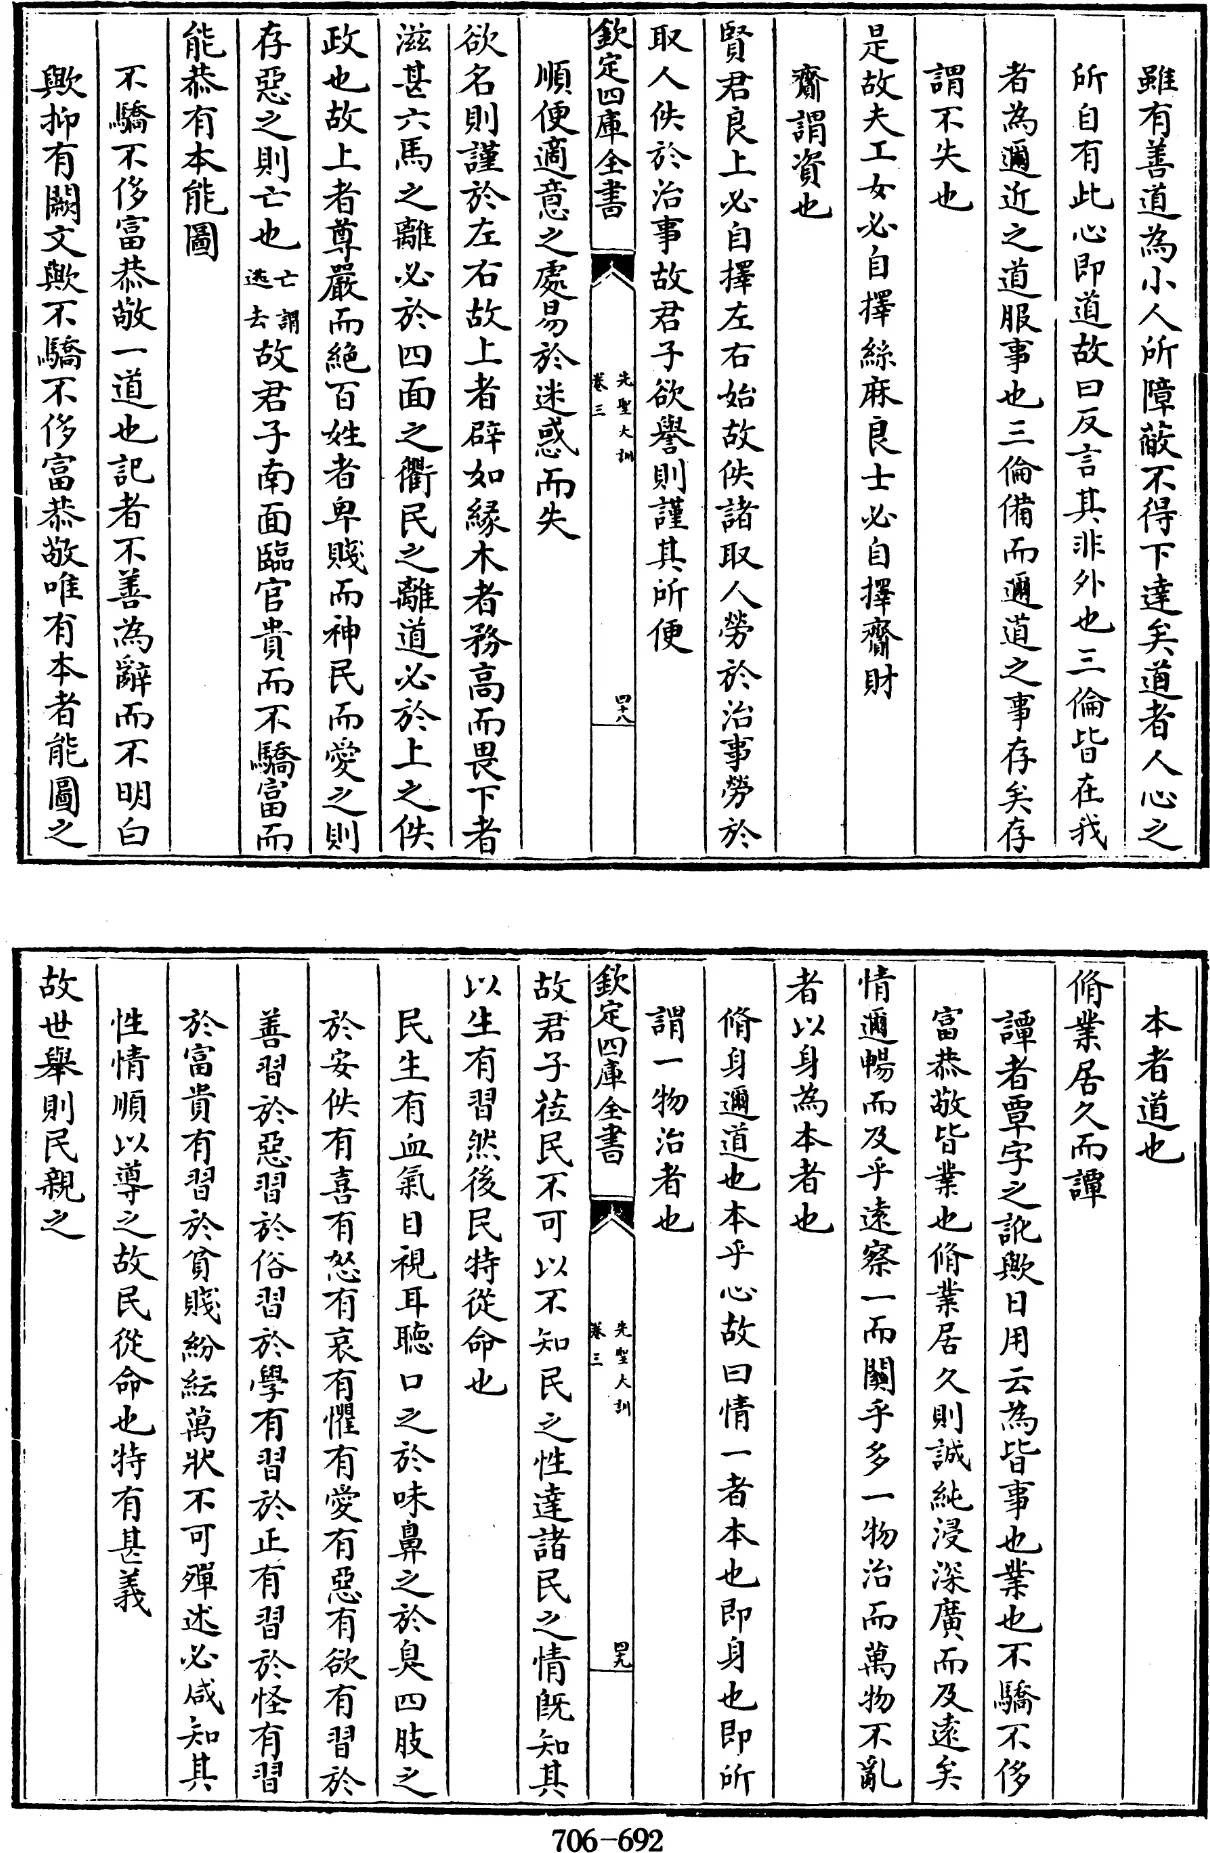 雖有善道為小人所障蔽不得下達矣道者人心之
所自有此心即道故曰反言其非外也三倫皆在我
者為邇近之道服事也三倫備而邇道之事存矣存
謂不失也
是故夫工女必自擇絲麻良士必自擇齎財
齎謂資也
賢君良上必自擇左右始故佚諸取人勞於治事勞於
取人佚於治事故君子欲譽則謹其所便
欽定四庫全書
先聖大訓
卷三
四十八
順便適意之處易於迷惑而失
欲名則謹於左右故上者辟如緣木者務高而畏下者
滋甚六馬之離必於四面之衢民之離道必於上之佚
政也故上者尊嚴而絕百姓者卑賤而神民而愛之則
存惡之則亡也亡謂逃去故君子南面臨官貴而不驕富而
能恭有本能圖
不驕不侈富恭敬一道也記者不善為辭而不明白
歟抑有闕文歟不驕不侈富恭敬唯有本者能圖之
本者道也
脩業居久而譚
譚者覃字之訛歟日用云為皆事也業也不驕不侈
富恭敬皆業也脩業居久則誠純浸深廣而及遠矣
情邇暢而及乎遠察一而關乎多一物治而萬物不亂
者以身為本者也
脩身邇道也本乎心故曰情一者本也即身也即所
謂一物治者也
欽定四庫全書
先聖大訓
卷三
四十九
故君子莅民不可以不知民之性達諸民之情既知其
以生有習然後民特從命也
民生有血氣目視耳聽口之於味鼻之於臭四肢之
於安佚有喜有怒有哀有懼有愛有惡有欲有習於
善習於惡習於俗習於學有習於正有習於怪有習
於富貴有習於貧賤紛紜萬狀不可殫述必咸知其
性情順以導之故民從命也特有甚義
故世舉則民親之
706-692